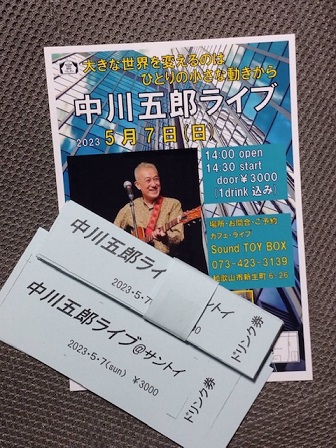 大きな世界を変えるのは
ひとりの小さな動きから
中川五郎ライブ
2023 5月7日(日)
14:00 open
14:30 start
door¥3000
(1drink 込み)
場所・お問合・ご予約
カフェ・ライブ
Sound TOY BOX
073-423-3139
和歌山市新生町6-26
中川五郎ライ
2023・5・7
ントイ
00
ドリンク券
中川五郎ライブ@サントイ
2023・5・7(sun) ¥3000
ドリンク券